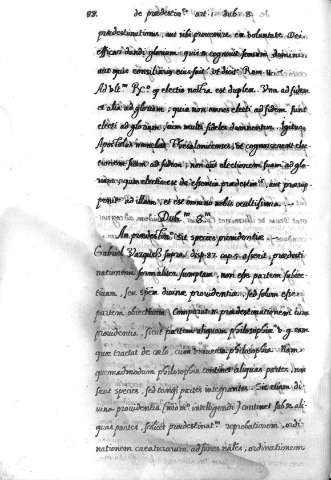 88. de prædestin.ne art. 1. dub. 8.
prædestinatus, aut sibi provenire ex voluntate Dei
efficaci dandi gloriam: quis n. cognovit sensum domini,
aut quis consiliarius ejus fuit? ut dicit Rom. 11.
Ad ult.m R.r q electio nostra est duplex. Una ad fidem
et alia ad gloriam, quia non omnes electi ad fidem sunt
electi ad gloriam, cum multi fideles damnentur. Igitur
Apostolus monebat Thessalonicenses, ut cognoscerent elec-
tionem suam ad fidem, non aut electionem suam ad glo-
riam, quæ electio est de essentia prædestin.nis, aut præsup-
ponitur ad illam, et est omnino nobis occultissima.
Dub. m 8.m
An prædestin.o sit species providentiæ
Gabriel Vazquez supra disp. 87. cap. 5. asserit, prædesti
nationem formaliter sumptam, non esse partem subiec-
tivam, seu speciem divinæ providentiæ, sed solum esse
partem obiectivam. Comparatur prædestinationem cum
providentia, sicut partem aliquam philosophiæ v. g. eam
quæ tractat de cœlo, cum universa philosophia. Nam
quemadmodum philosophia continet aliquas partes, non
sunt species, sed tanq. partes integrantes. Sic etiam di
vina providentia (modo n.ro intelligendi) continet sub se ali
quas partes, scilicet prædestinat.m reprobationem, ordi
nationem creaturarum ad fines nales, ordinationem